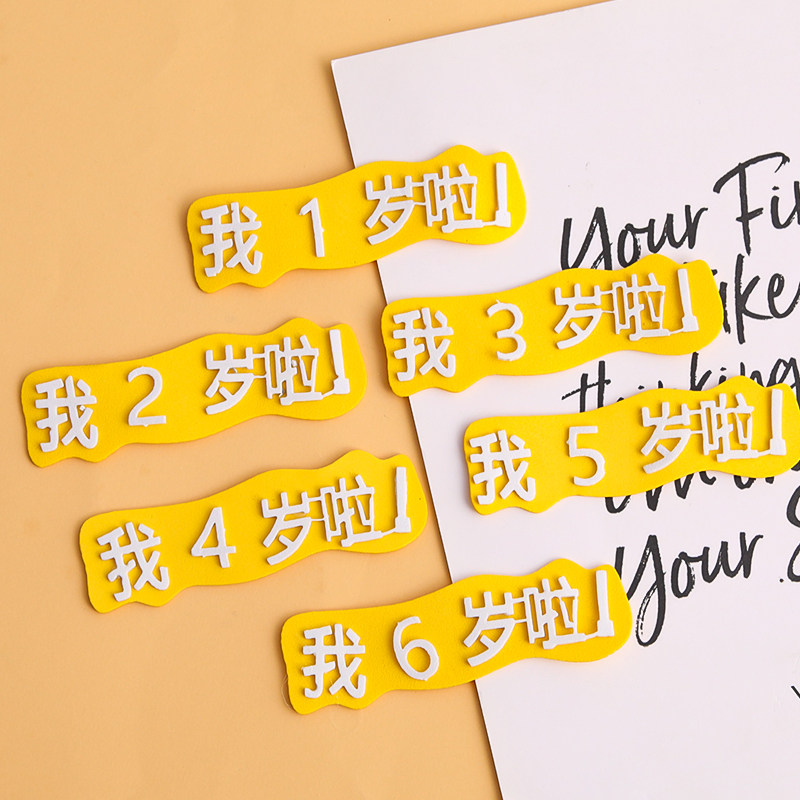 我1岁啦!
我2岁啦!
我3岁啦!
我4岁啦!
我5岁啦!
我6岁啦!
Your
thinking
Your